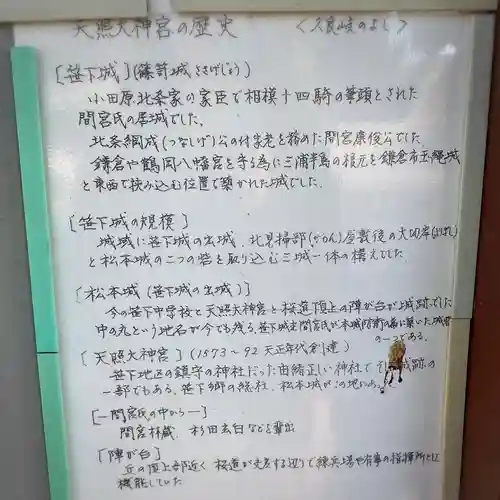 天照大神宮の歴史 <久良岐のよし>
[笹下城](篠 城 ささげじょう)
小田原北条家の家臣で相模十四騎の筆頭とされた
間宮氏の居城でした。
北条綱成(つなしげ)公の付家老を務めた間宮康俊公でした
鎌倉や鶴岡八幡宮を守る為に三浦半島の根元を鎌倉市玉縄城
と東西で挟み込む位置で築かれた城でした.
[笹下城の規模]
城域に笹下城の出城、北見掃部(かもん)屋敷後の大切岸
と松本城の二つの砦を取り込む三城一体の構えでした
[松本城(笹下城の出城)]
今の笹下中学校と天照大神宮と桜道頂上の陣が台が城跡でした
中の丸という地名が今でも残る.笹下城主間宮氏が本城防衛の為に築いた城郭
の一つである.
[天照大神宮](1573~92 天正年代創建)
笹下地区の鎮守の神社だった由緒正しい神社で 城跡の
一部でもある.笹下郷の総社、松本城がこの地 ある
[-間宮氏の中から-]
間宮林蔵、杉田玄白などを輩出
「陣が台」
丘の頂上部近く 桜道が交差する辺りで練兵場や有事の指揮所として
機能していた